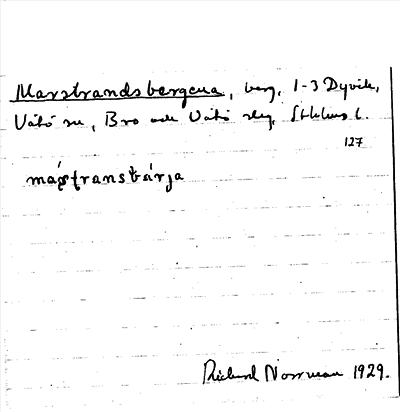 Marstrandsbergena, berg, 1-3 Dyvik,
Vätö sn, Bro och Vätö slg, Sthlms l.
127
marstransbárja
Rickard Norrman 1929.